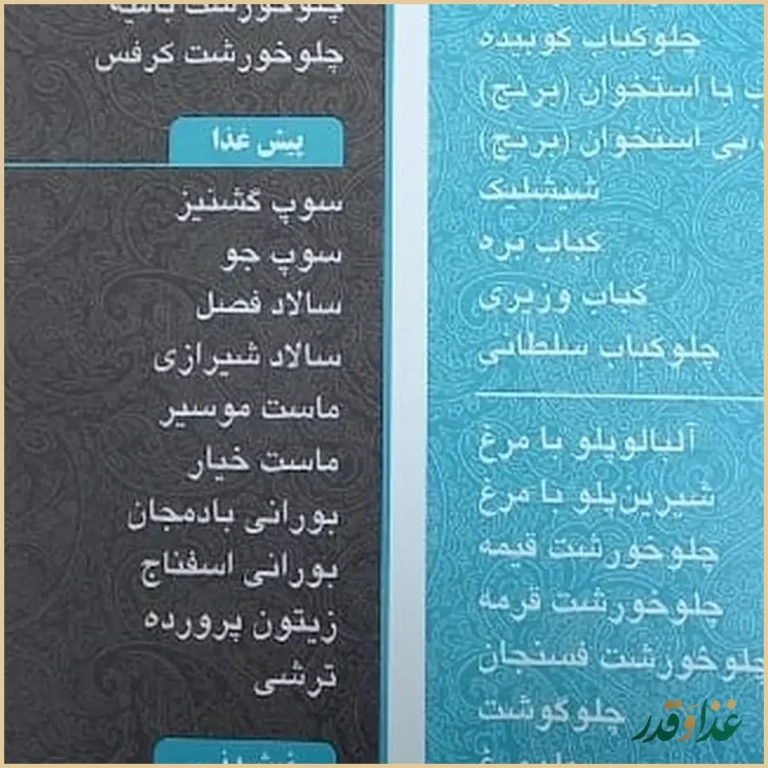 چلوکباب کوبیده
با استخوان (برنج)
بی استخوان (برنج)
شیشلیک
کباب بره
کباب وزیری
چلوکباب سلطانی
آلبالوپلو با مرغ
شیرین‌پلو با مرغ
چلوخورشت قیمه
چلوخورشت قرمه
چلوخورشت فسنجان
چلوگوشت
چلوخورشت بامیه
چلوخورشت کرفس
پیش غذا
سوپ گشنیز
سوپ جو
سالاد فصل
سالاد شیرازی
ماست موسیر
ماست خیار
بورانی بادمجان
بورانی اسفناج
زیتون پرورده
ترشی
غذا و قدر